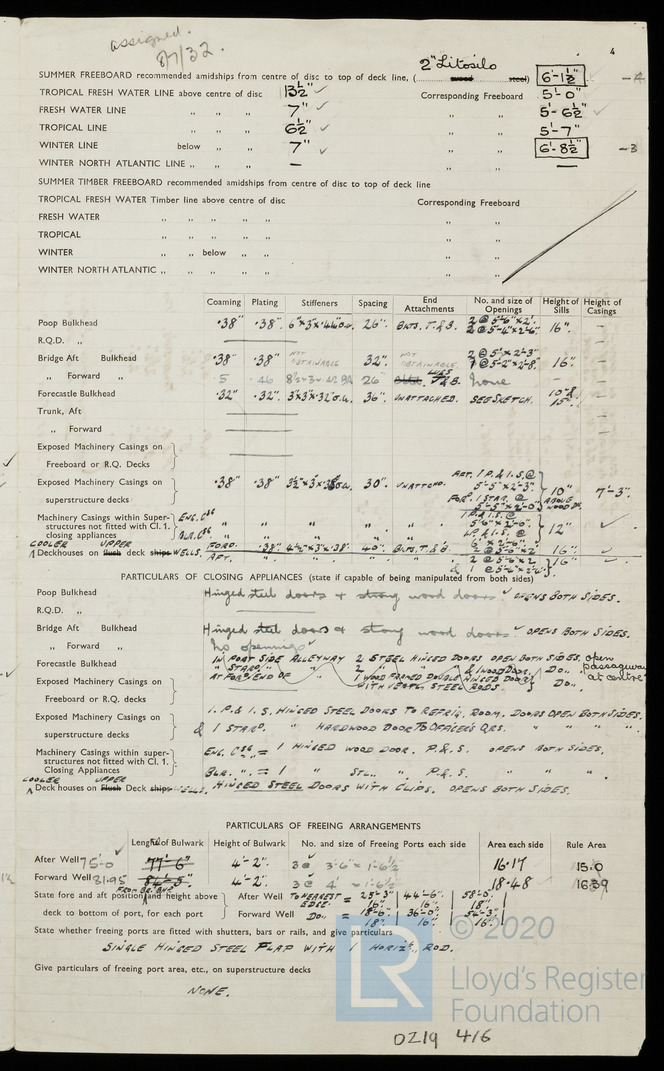 assigned.
4
2" Litosilo
SUMMER FREEBOARD recommended amidships from centre of disc to top of deck line, (wood steel) 6'-1½" -4
TROPICAL FRESH WATER LINE above centre of disc 13½" Corresponding Freeboard 5'-0"
FRESH WATER LINE ,, ,, ,, 7" ,, ,, 5'-6½"
TROPICAL LINE ,, ,, ,, 6½" ,, ,, 5'-7"
WINTER LINE below ,, ,, 7" ,, ,, 6'-8½" -3
WINTER NORTH ATLANTIC LINE ,, ,, ,, — ,, ,, —
SUMMER TIMBER FREEBOARD recommended amidships from centre of disc to top of deck line
TROPICAL FRESH WATER Timber line above centre of disc Corresponding Freeboard
FRESH WATER ,, ,, ,, ,, ,, ,,
TROPICAL ,, ,, ,, ,, ,, ,,
WINTER ,, ,, below ,, ,, ,, ,,
WINTER NORTH ATLANTIC ,, ,, ,, ,, ,, ,,
Coaming Plating Stiffeners Spacing End Attachments No. and size of Openings Height of Sills Height of Casings
Poop Bulkhead .38" .38" 26" BKTS. T. & B. 2 @ 5'-4" x 2'-6" 16" —
R.Q.D. ,,
Bridge Aft Bulkhead .38" .38" NOT OBTAINABLE 32" NOT OBTAINABLE 2 @ 5' x 2'-3" 16" —
,, Forward ,, .46 26 LUGS T&B. none —
Forecastle Bulkhead .32" .32" 36" UNATTACHED. SEE SKETCH. 15" —
Trunk, Aft
,, Forward
Exposed Machinery Casings on
Freeboard or R.Q. Decks
Exposed Machinery Casings on superstructure decks .38" .38" 30" UNATTCHD. AFT. 1 P. & 1 S. @ 5'-5" x 2'-3" 10" ABOVE WOOD DK. 7'-3"
FORD. 1 STAR. @ 5'-5" x 2'-0"
Machinery Casings within Super-
structures not fitted with Cl. 1.
closing appliances
ENG. CSG ,, ,, ,, ,, ,, 5'-6" x 2'-6" 12"
BLR. CSG ,, ,, ,, ,, ,,
COOLER UPPER
Deckhouses on flush Deck ships WELLS. FORD. .38" 4½" x 3" x .38" 40" BKTS. T. & B. 2 @ 5'-6" x 2' 16"
AFT. ,, ,, ,, ,, 16"
PARTICULARS OF CLOSING APPLIANCES (state if capable of being manipulated from both sides)
Poop Bulkhead Hinged steel doors & strong wood doors. OPENS BOTH SIDES.
R.Q.D. ,,
Bridge Aft Bulkhead Hinged steel doors & strong wood doors. OPENS BOTH SIDES.
,, Forward ,, No openings
Forecastle Bulkhead IN PORT SIDE ALLEYWAY 2 STEEL HINGED DOORS OPEN BOTH SIDES. open passageway at centre
,, STARD. ,, ,, ,, & 1 WOOD DOOR DO.
AT FORD. END OF 1 WOOD FRAMED DOUBLE HINGED DOOR WITH VERTL. STEEL RODS. DO.
Exposed Machinery Casings on
Freeboard or R.Q. Decks
Exposed Machinery Casings on superstructure decks 1. P. & 1. S. HINGED STEEL DOORS TO REFRIG. ROOM. DOORS OPEN BOTH SIDES.
& 1 STARD. ,, HARDWOOD DOOR TO OFFICER'S QRS. ,, ,, ,,
Machinery Casings within super-
structures not fitted with Cl. 1.
Closing Appliances
ENG. CSG. = 1 HINGED WOOD DOOR. P. & S. OPENS BOTH SIDES.
BLR. ,, = 1 ,, STL. ,, P. & S. ,, ,, ,,
COOLER UPPER
Deck houses on Flush Deck ships WELLS. HINGED STEEL DOORS WITH CLIPS. OPENS BOTH SIDES.
PARTICULARS OF FREEING ARRANGEMENTS
Length of Bulwark Height of Bulwark No. and size of Freeing Ports each side Area each side Rule Area
After Well 75'-0 77'-6" 4'-2". 3 @ 3'-6" x 1'-6½" 16.17 15.0
Forward Well 81.95 84'-5" 4'-2". 3 @ 4' x 1'-6½" 18.48 16.39
FROM BR. BHD
State fore and aft position and height above
deck to bottom of port, for each port
After Well TO NEAREST EDGE. = 25'-3" 16" 44'-6" 16" 58'-0" 18"
Forward Well DO. = 18'-6" 18" 36'-0" 16" 54'-3" 16"
State whether freeing ports are fitted with shutters, bars or rails, and give particulars
SINGLE HINGED STEEL FLAP WITH 1 HORIZL. ROD.
Give particulars of freeing port area, etc., on superstructure decks
NONE.
© 2020
LR
Lloyd's Register
Foundation
0219 416